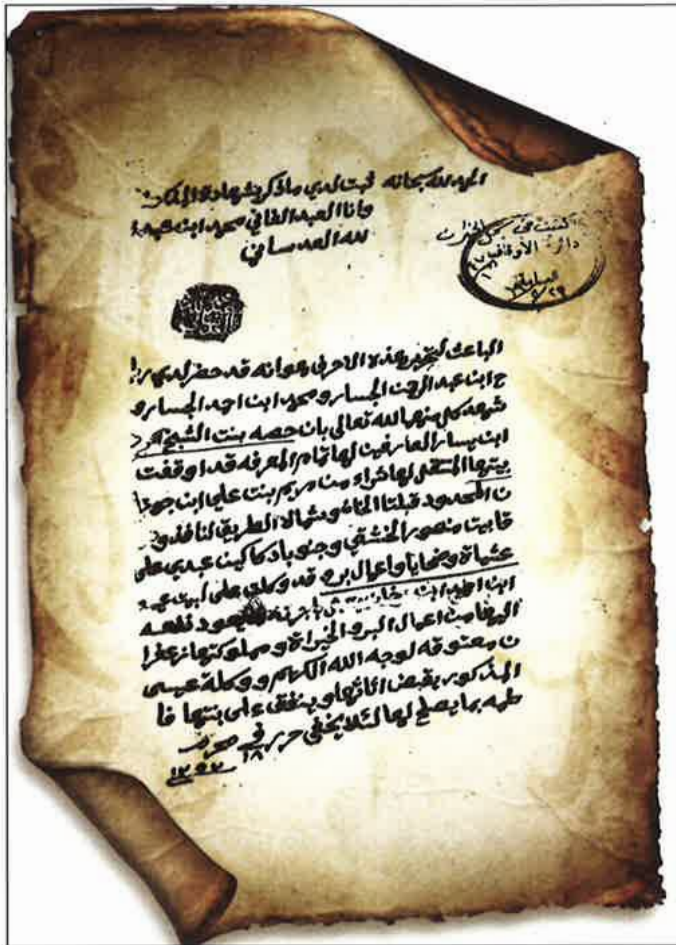 الحمد لله سبحانه ثبت لدي ما ذكر بشهادة المذكورين
وانا العبد الفاني محمد ابن عبدا
لله العدساني
دائرة الأوقاف
الباعث لتحرير هذه الاحرف هوانه قد حضر لدي ربا
ح ابن عبد الرحمن الجسار ومحمد ابن احمد الجسار و
شهد كل منهما لله تعالى بان حصه بنت الشيخ
ابن يسار العارفين لها تمام المعرفه قد اوقفت
بيتها المنتقل لها شراء من مريم بنت علي ابن جمعا
ن المحدود قبلتا وشمالا الطريق النافذ و
قا بيت منصور الخشتي وجنوبا دكاكين عبدي على
عشياة وضحايا واعمال بره قد وكلت على
ابن يعود نفعه
اليها من اعمال البر والخيراة ومملوكتها زعفرا
ن معتوقه لوجه الله الكريم ووكلة عيسى
المذكور يقبض اثاثها وينفق على بنتها فا
طمه بما يصلح لها لئلا يخفى حرر في
١٨